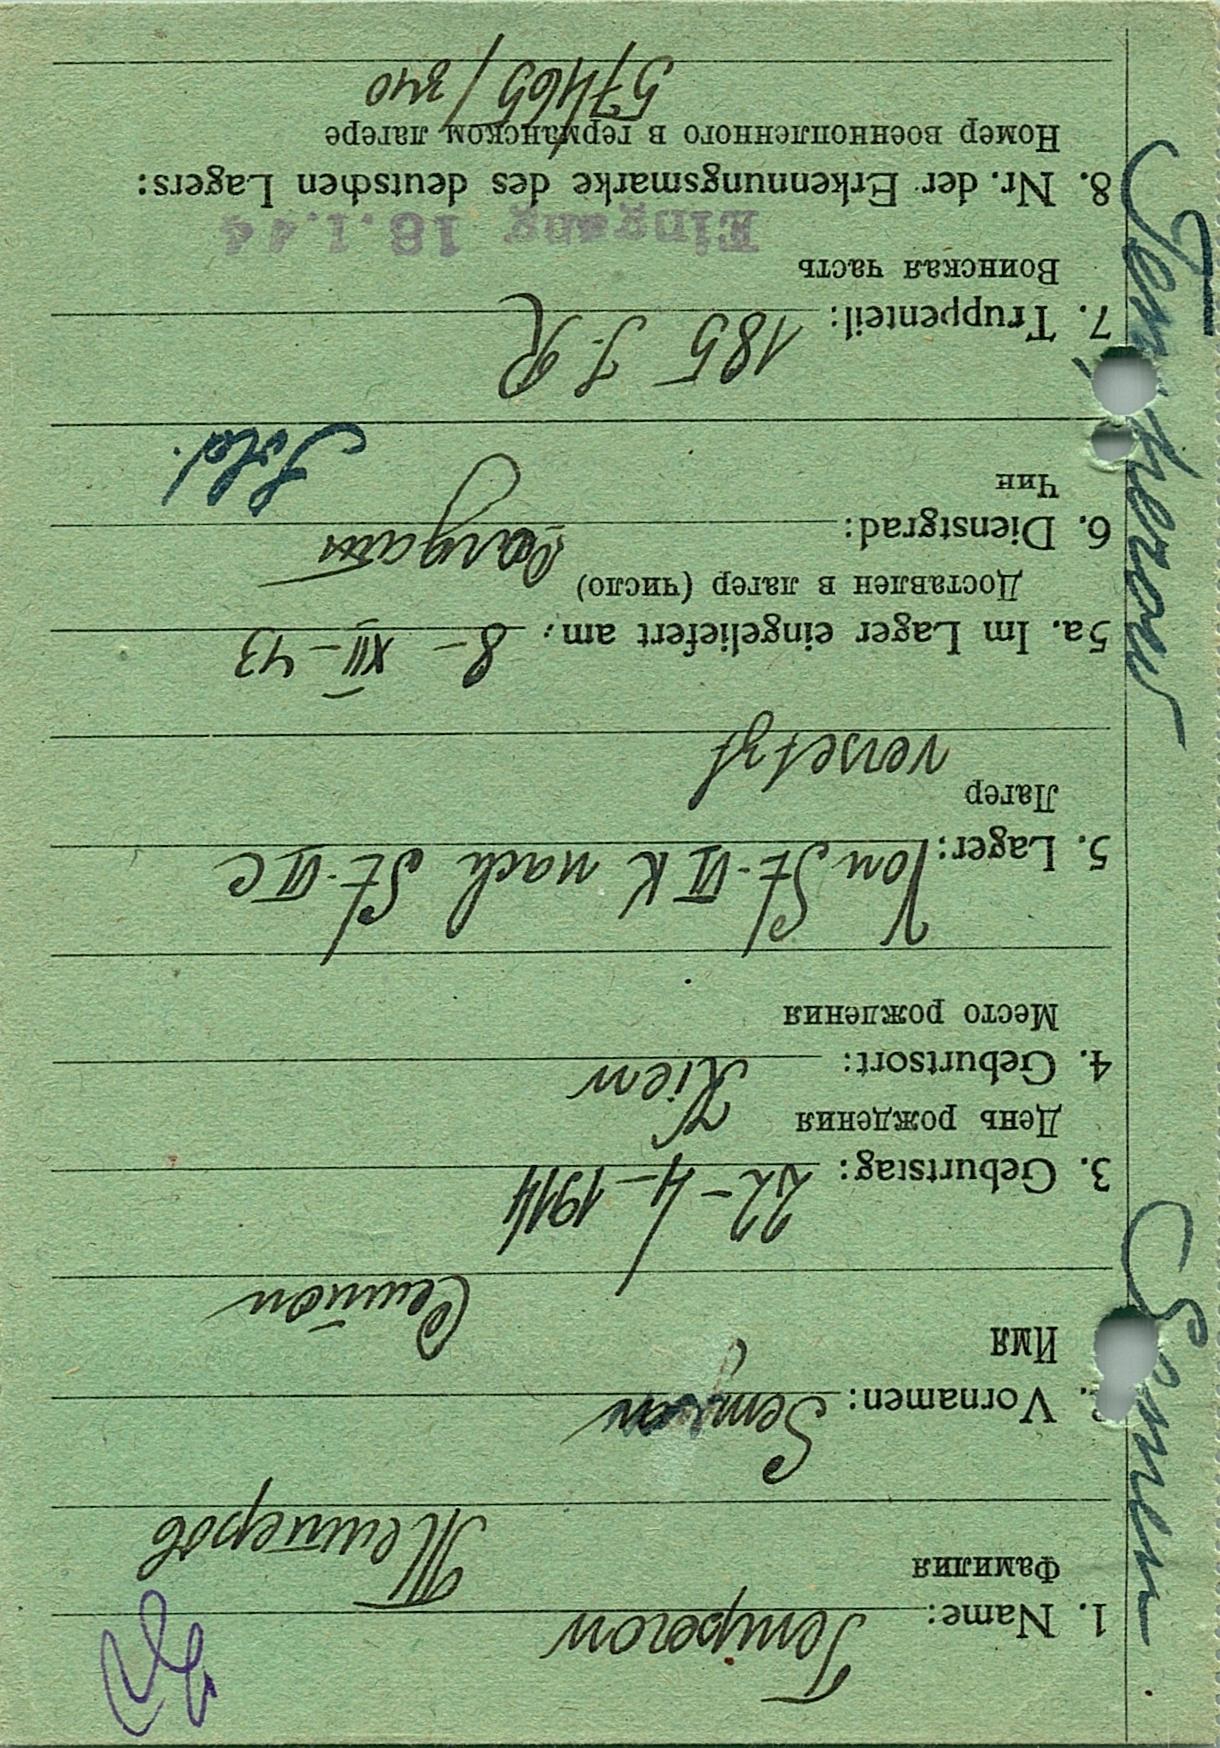 1. Name: Temperow
Фамилия Темперов
2. Vornamen: Semjon
Имя Семион
3. Geburtstag: 22-4-1914
День рождения
4. Geburtsort: Kiew
Место рождения
5. Lager: Von St-VI K nach St-VI C
Лагер
versetzt
5a. Im Lager eingeliefert am: 8-XII-43
Доставлен в лагер (число)
6. Dienstgrad:
Чин Sold.
7. Truppenteil: 185 J.R
Воинская часть
Eingang 18.1.44
8. Nr. der Erkennungsmarke des deutschen Lagers:
Номер военнопленного в германском лагере
57465/340
Semen